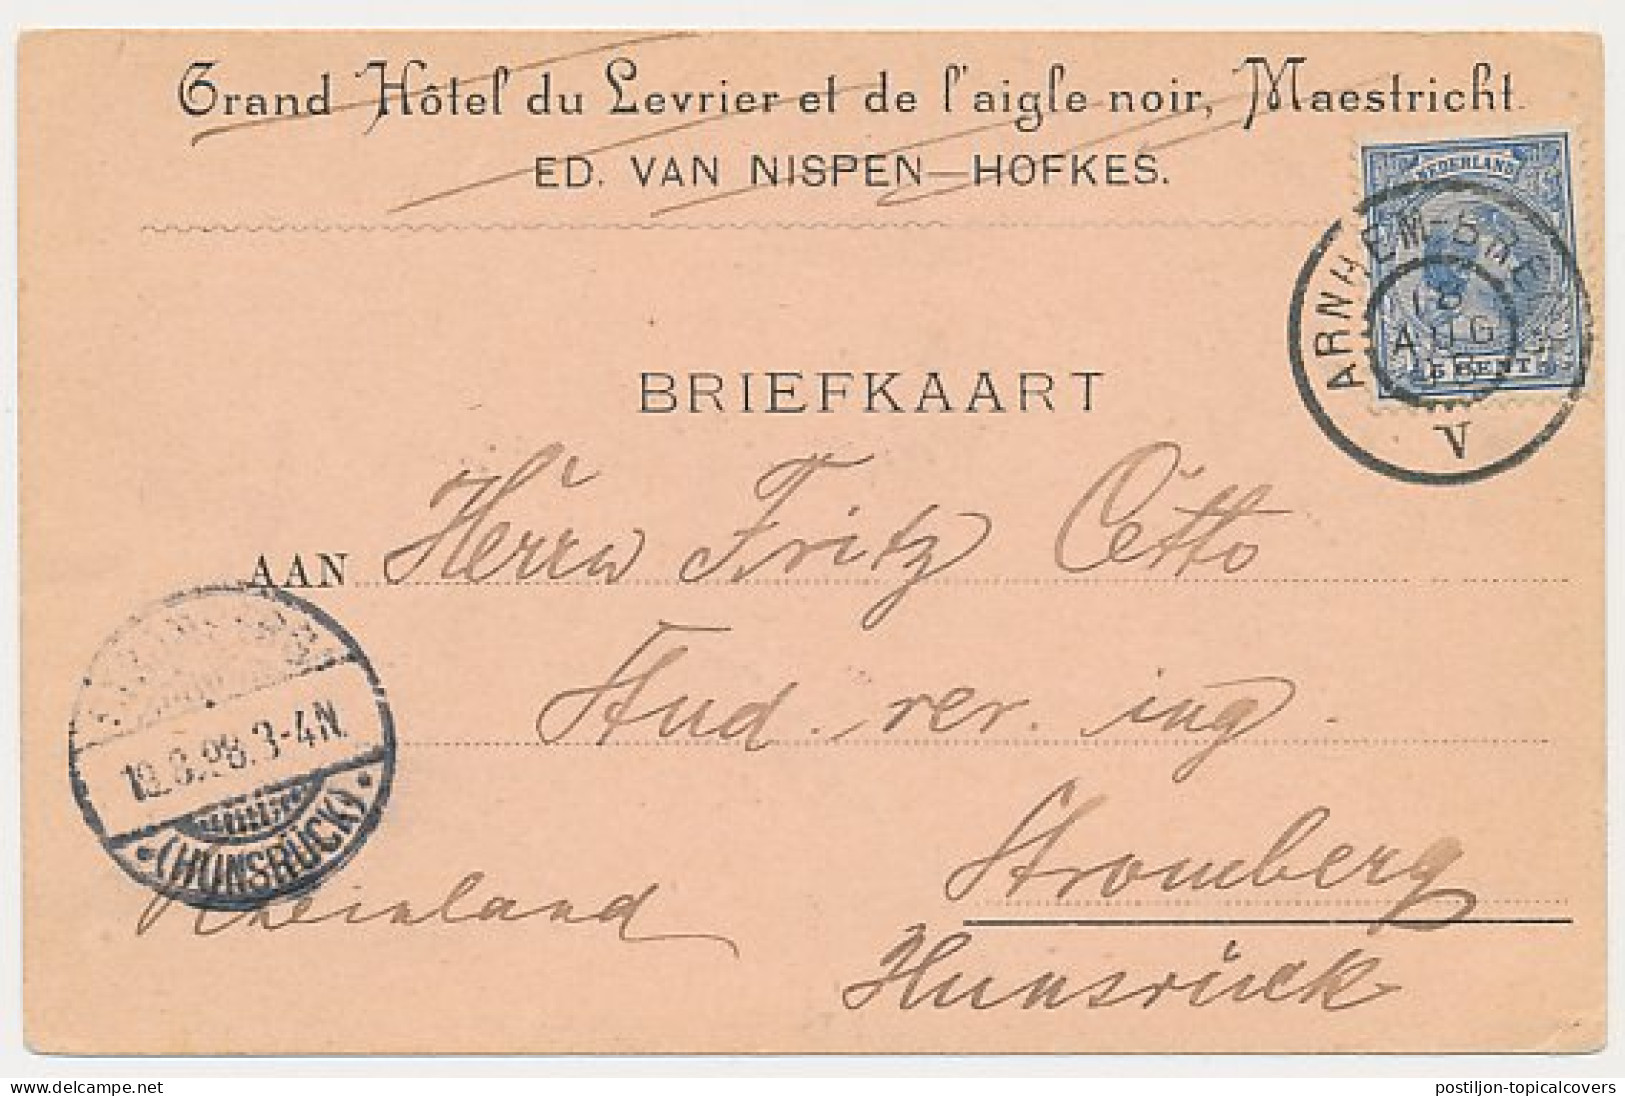 Grand Hôtel du Levrier et de l'aigle noir, Maestricht.
ED. VAN NISPEN-HOFKES.
NEDERLAND
ARNHEM-
18
AUG
5 CENT
V
BRIEFKAART
AAN Herrn Fritz Cetto
Stud. rer. ing.
19.8.98. 3-4N.
(HUNSRÜCK)
Stromberg
Rheinland
Hunsrück
delcampe.net
postiljon-topicalcovers